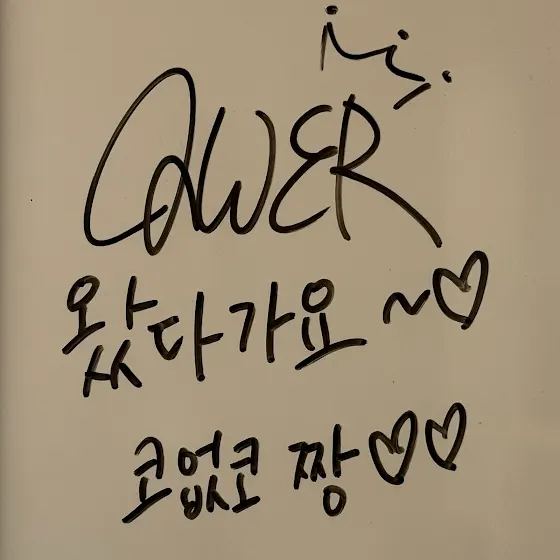 QWER
왔다가요 ~♡
코없코 짱♡♡